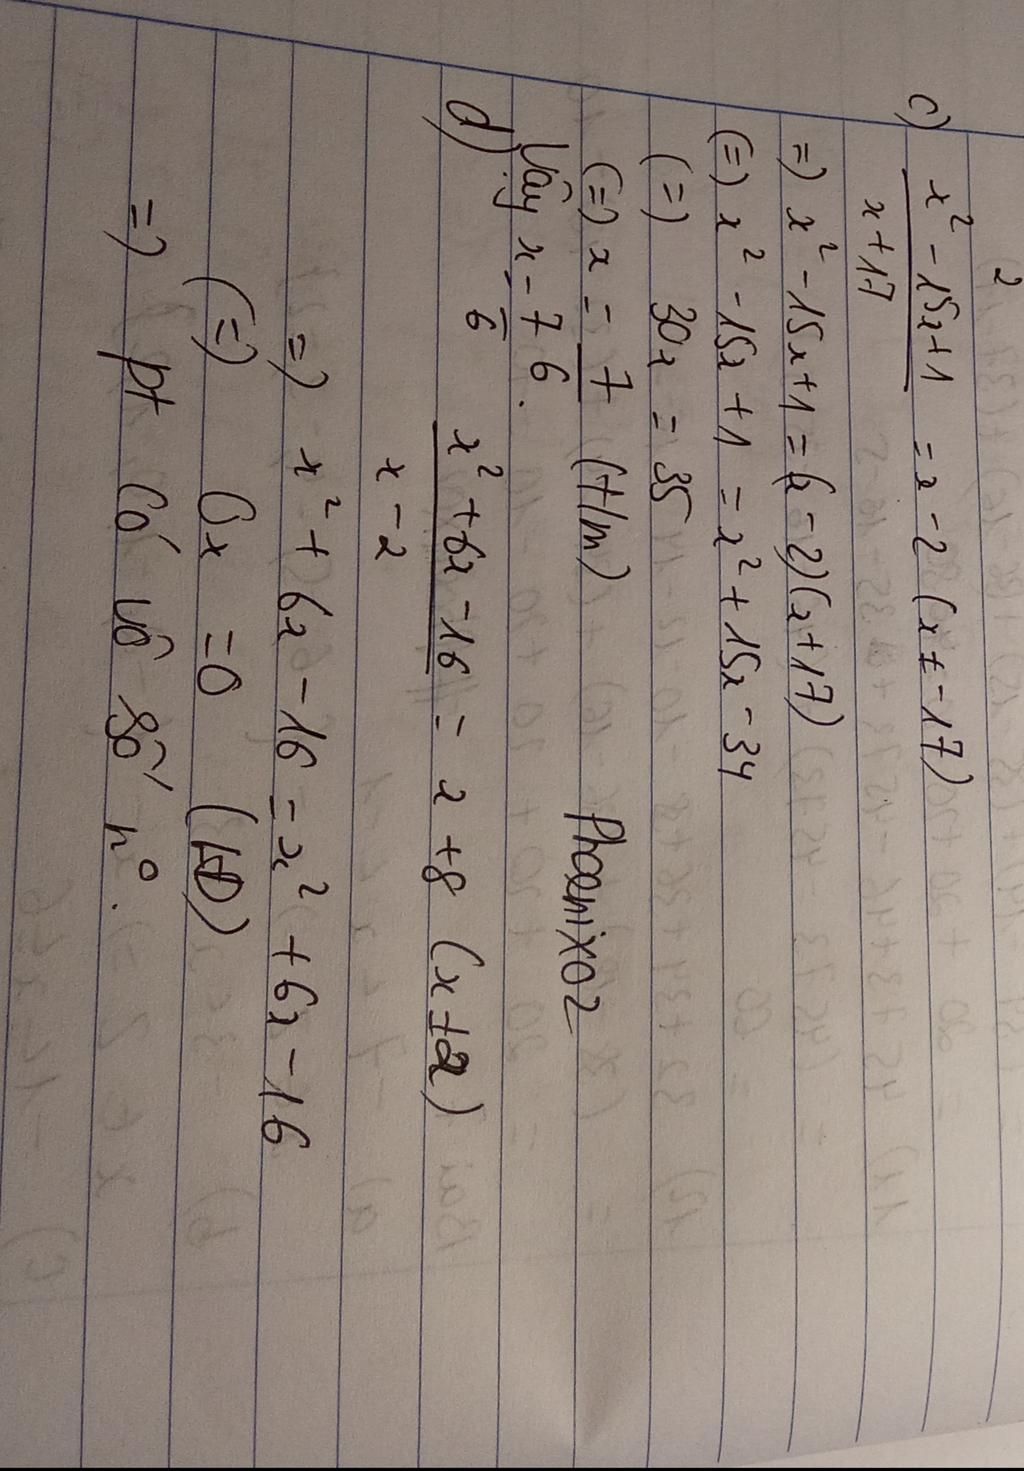 2
c) x² - 15x + 1 / x + 17 = x - 2 (x ≠ - 17)
=) x² - 15x + 1 = (x - 2)(x + 17)
(=) x² - 15x + 1 = x² + 15x - 34
(=) 30x = 35
(=) x = 7/6 (t/m)
Vậy x = 7/6.
Phoenix02
d) x² + 6x - 16 / x - 2 = x + 8 (x ≠ 2)
=) x² + 6x - 16 = x² + 6x - 16
(=) 0x = 0 (LĐ)
=) pt có vô số n⁰.